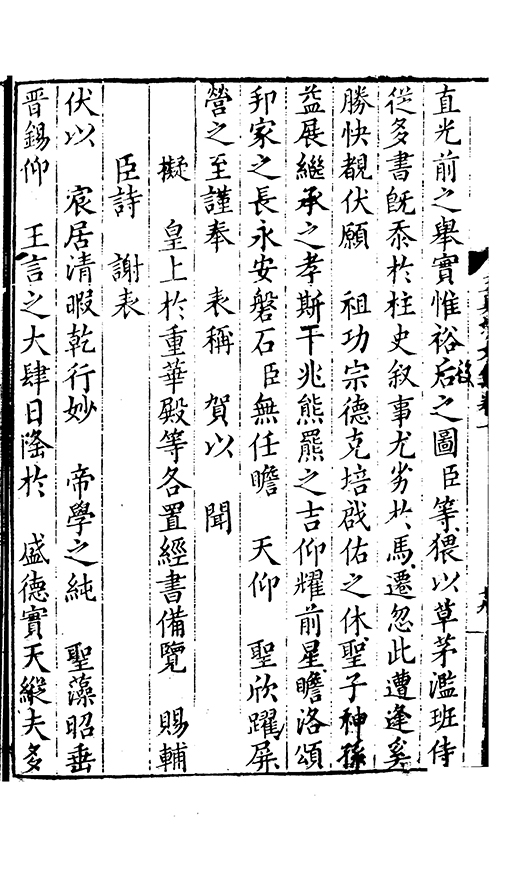 直光前之舉實惟裕后之圖臣等猥以草茅濫班侍
從多書旣忝於柱史叙事尤劣於馬遷忽此遭逢奚
勝快覩伏願　祖功宗德克培啟佑之休聖子神孫
益展繼承之孝斯干兆熊羆之吉仰耀前星瞻洛頌
邦家之長永安磐石臣無任瞻　天仰　聖欣躍屏
營之至謹奉　表稱　賀以　聞
擬　皇上於重華殿等各置經書備覽　賜輔
臣詩　謝表
伏以　宸居清暇乾行妙　帝學之純　聖藻昭垂
晉錫仰　王言之大肆日隆於　盛德實天縱夫多